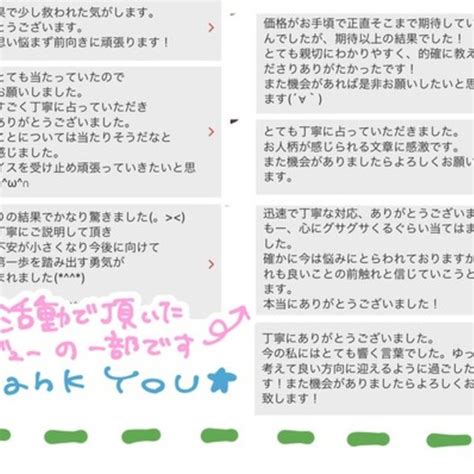 果で少し救われた気がします。
とうございます。
思い悩まず前向きに頑張ります！
とても当たっていたので
お願いしました。
すごく丁寧に占っていただき
ありがとうございました。
ことについては当たりそうだなと
感じました。
イスを受け止め頑張っていきたいと思
^ω^∩
りの結果でかなり驚きました(。><)
丁寧にご説明して頂き
不安が小さくなり今後に向けて
第一歩を踏み出す勇気が
まれました(*^^*)
活動で頂いた
ビューの一部です
ank YOU★
価格がお手頃で正直そこまで期待してい
んでしたが、期待以上の結果でした！
とても親切にわかりやすく、的確に教え
ださりありがたかったです！
また機会があれば是非お願いしたいと思
ます(´∀｀)
とても丁寧に占っていただきました。
お人柄が感じられる文章に感激です。
また機会がありましたらよろしくお願い
ます。
迅速で丁寧な対応、ありがとうございま
もー、心にグサグサくるぐらい当てはま
した。
確かに今は悩みにとらわれておりますが
れも良いことの前触れと信じていこうと
ます。
本当にありがとうございました！
丁寧にありがとうございます。
今の私にはとても響く言葉でした。ゆっ
考えて良い方向に迎えるように過ごした
す！また機会がありましたらよろしくお
致します！